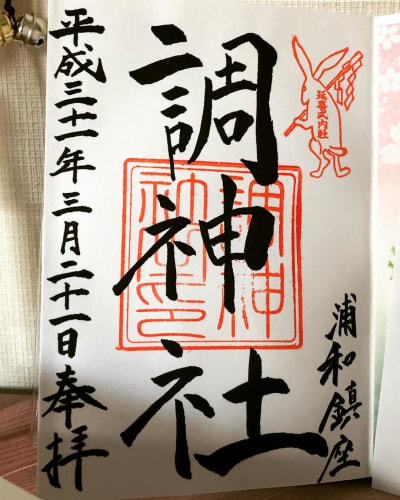 延喜式内社
浦和鎮座
調神社
調神社之印
平成三十一年三月二十一日奉拝